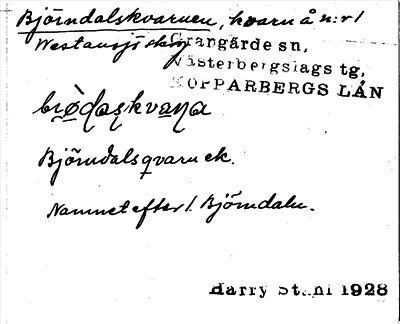 Björndalskvarnen, kvarn å n:r 1
Westansjö skog
Grangärde sn,
Västerbergslags tg,
KOPPARBERGS LÄN
Björndalsqvarn ek.
Namnet efter 1. Björndalen.
Harry Ståhl 1928